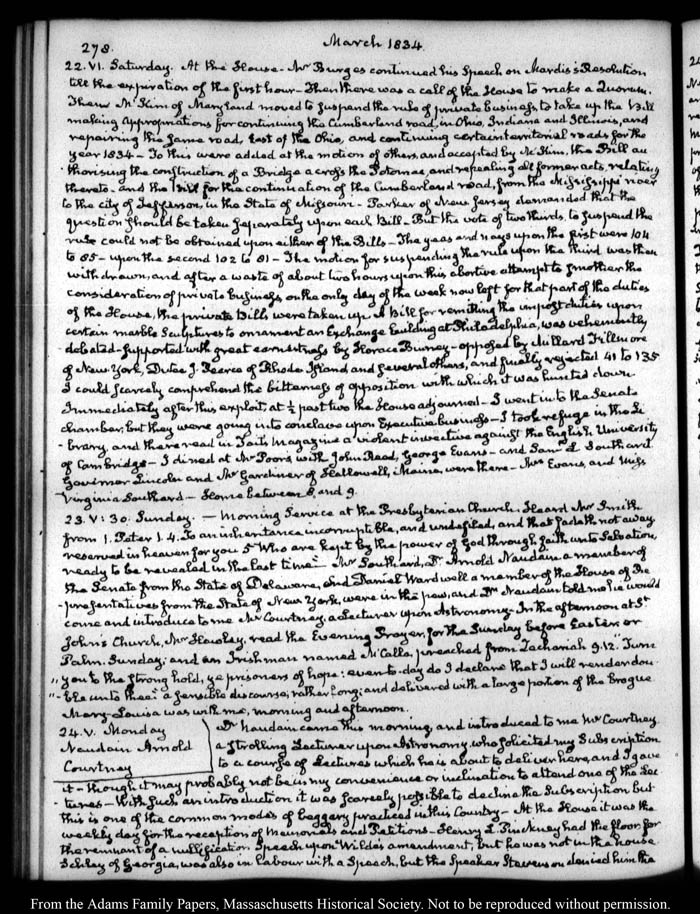 278.
March 1834.
22. VI. Saturday. At the House. Mr Burges continued his Speech on Mardis's Resolution
till the expiration of the first hour. Then there was a call of the House to make a Quorum.
Then McKim of Maryland moved to suspend the rule of private business to take up the Bill
making appropriations for continuing the Cumberland road, in Ohio, Indiana and Illinois, and
repairing the same road, East of the Ohio, and continuing certain territorial roads for the
year 1834 - To this were added at the motion of others, and accepted by McKim, the Bill au-
thorising the construction of a Bridge across the Potomac, and repealing all former acts, relating
thereto - and the Bill for the continuation of the Cumberland road, from the Mississippi river
to the city of Jefferson, in the State of Missouri - Parker of New Jersey demanded that the
question should be taken separately upon each Bill. But the vote of two thirds, to suspend the
rule could not be obtained upon either of the Bills - The yeas and nays upon the first were 104
to 85 - upon the second 102 to 81 - The motion for suspending the rule upon the third was then
withdrawn, and after a waste of about two hours upon this abortive attempt to smother the
consideration of private business, on the only day of the week now left for that part of the duties
of the House, the private Bills were taken up. A Bill for remitting the impost duties upon
certain marble Sculptures to ornament an Exchange building at Philadelphia, was vehemently
debated - supported with great earnestness by Horace Binney - opposed by Millard Fillmore
of New York, Dutee J. Pearce of Rhode Island and several others, and finally rejected 41 to 135
I could scarcely comprehend the bitterness of opposition with which it was hunted down
Immediately after this exploit, at ½ past two the House adjourned - I went into the Senate
chamber, but they were going into conclave upon Executive business - I took refuge in the Li-
-brary, and there read in Taits Magazine a violent invective against the English University
of Cambridge - I dined at Mr Poor's with John Reed, George Evans - and Saml L Southard
Governor Lincoln and Mr Gardiner of Hallowell, Maine, were there - Mrs Evans, and Miss
Virginia Southard - Home between 8 and 9.
23. V:30. Sunday. - Morning Service at the Presbyterian Church. Heard Mr Smith
from 1. Peter 1. 4. To an inheritance incorruptible, and undefiled, and that fadeth not away,
reserved in heaven for you 5 Who are kept by the power of God through faith unto Salvation,
ready to be revealed in the last time - Mr Southard, Dr Arnold Naudain a member of
the Senate from the State of Delaware, and Daniel Wardwell a member of the House of Re
-presentatives from the State of New York, were in the pew, and Dr Naudain told me he would
come and introduce to me Mr Courtney, a Lecturer upon Astronomy. In the afternoon at St
John's Church, Mr Hawley, read the Evening Prayer, for the Sunday before Easter or
Palm Sunday; and an Irishman named McCalla, preached from Zechariah 9. 12. "Turn
"you to the strong hold, ye prisoners of hope: even to-day do I declare that I will render dou-
"-ble unto thee": a sensible discourse, rather long; and delivered with a large portion of the brogue
Mary-Louisa was with me, morning and afternoon.
24. V. Monday
Naudain Arnold
Courtney
Dr Naudain came this morning, and introduced to me Mr Courtney
a strolling Lecturer upon Astronomy, who solicited my Subscription
to a course of Lectures which he is about to deliver here, and I gave
it - though it may probably not be in my convenience or inclination to attend one of the Lec
-tures - With such an introduction it was scarcely possible to decline the Subscription but
this is one of the common modes of beggary practiced in this Country - At the House it was the
weekly day for the reception of Memorials and Petitions - Henry L. Pinckney had the floor for
the remnant of a nullification Speech upon Wilde's amendment, but he was not in the house
Schley of Georgia, was also in labour with a Speech, but the Speaker Stevenson denied him the
From the Adams Family Papers, Massachusetts Historical Society. Not to be reproduced without permission.